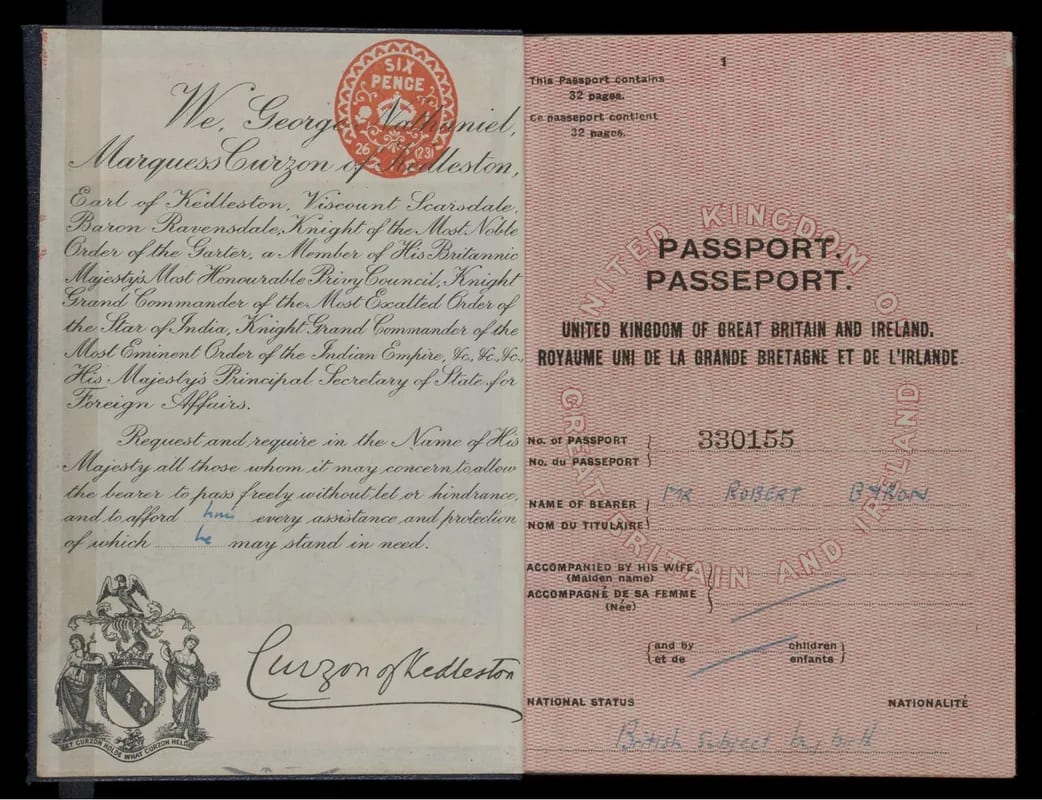 SIX
PENCE
26 (23)
We, George Nathaniel,
Marquess Curzon of Kedleston,
Earl of Kedleston, Viscount Scarsdale,
Baron Ravensdale, Knight of the Most Noble
Order of the Garter, a Member of His Britannic
Majesty's Most Honourable Privy Council, Knight
Grand Commander of the Most Exalted Order of
the Star of India, Knight Grand Commander of the
Most Eminent Order of the Indian Empire, &c, &c, &c,
His Majesty's Principal Secretary of State for
Foreign Affairs.
Request and require in the Name of His
Majesty all those whom it may concern to allow
the bearer to pass freely without let or hindrance,
and to afford him every assistance and protection
of which he may stand in need.
Curzon of Kedleston
LET CURZON HOLDE WHAT CURZON HELDE
1
This Passport contains
32 pages.
Ce passeport contient
32 pages.
UNITED KINGDOM OF
GREAT BRITAIN AND IRELAND
PASSPORT.
PASSEPORT.
UNITED KINGDOM OF GREAT BRITAIN AND IRELAND.
ROYAUME UNI DE LA GRANDE BRETAGNE ET DE L'IRLANDE.
No. of PASSPORT
330155
No. du PASSEPORT
NAME OF BEARER
MR ROBERT BYRON
NOM DU TITULAIRE
ACCOMPANIED BY HIS WIFE
(Maiden name)
ACCOMPAGNÉ DE SA FEMME
(Née)
and by children
et de enfants
NATIONAL STATUS NATIONALITÉ
British Subject by birth